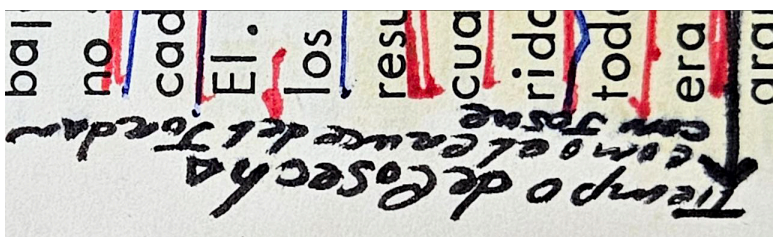 bal
no
cad
El.
los
resu
cua
rido
todo
era
Tiempo de Cosecha
como el cruce del Jordan
con Josue